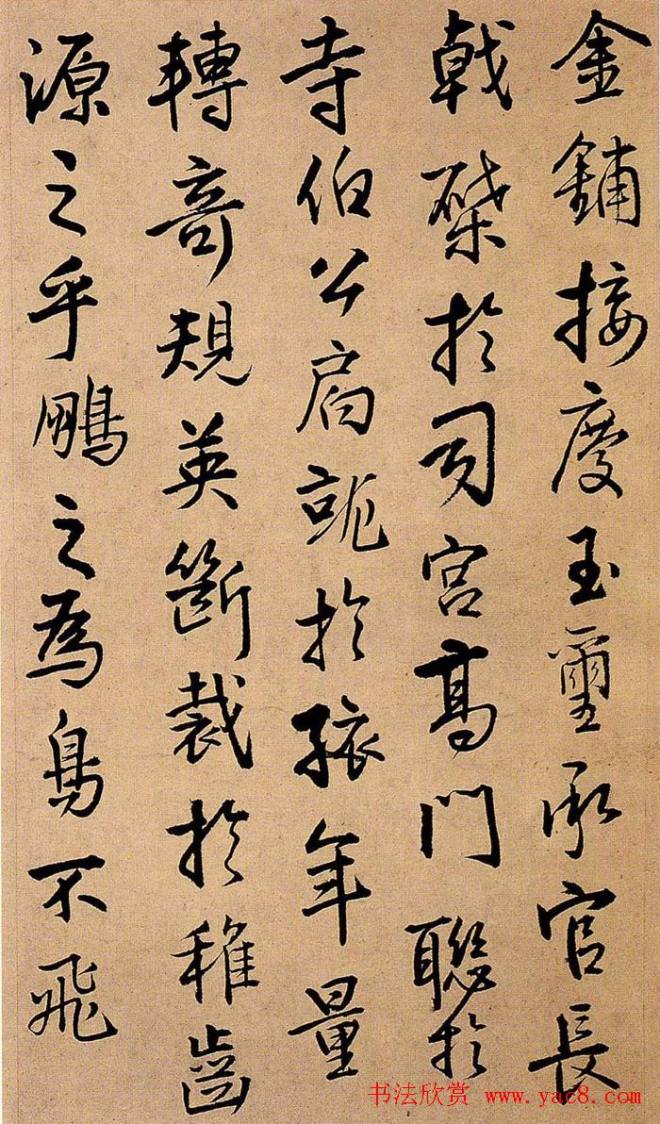 金鋪接慶玉璽承官長
戟槊於司宮高門聯於
寺伯公扃訛於孩年量
轉奇規英斷裁於稚齒
源之乎鵬之為鳥不飛
书法欣赏 www.yac8.com